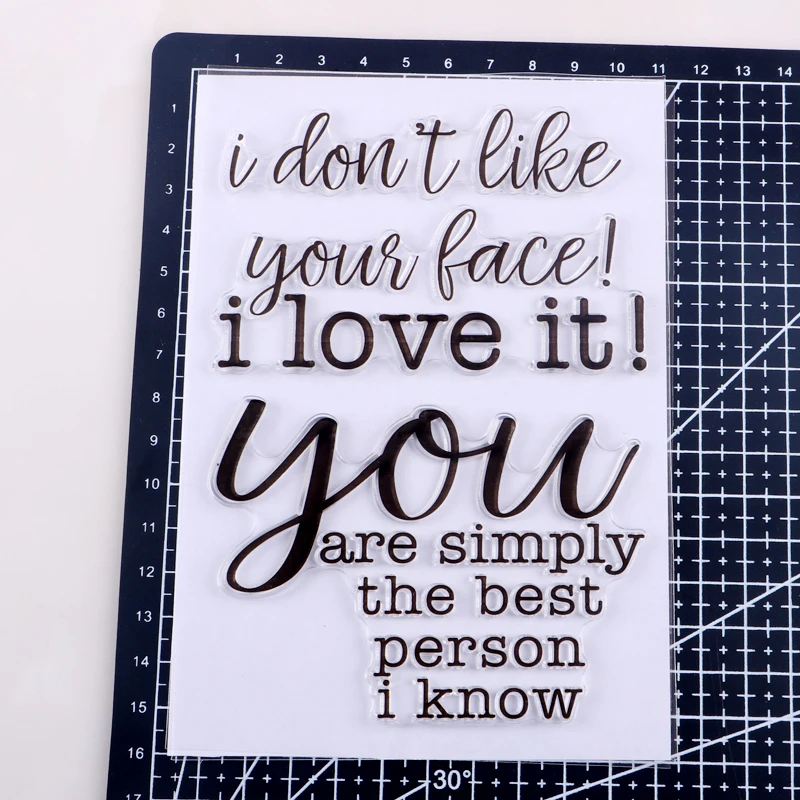 1 2 3 4 5 6 7 8 9 10 11 12 13 14
1
2
3
4
5
6
7
8
9
10
11
12
13
14
15
16
17
i don't like
your face!
i love it!
you
are simply
the best
person
i know
30°